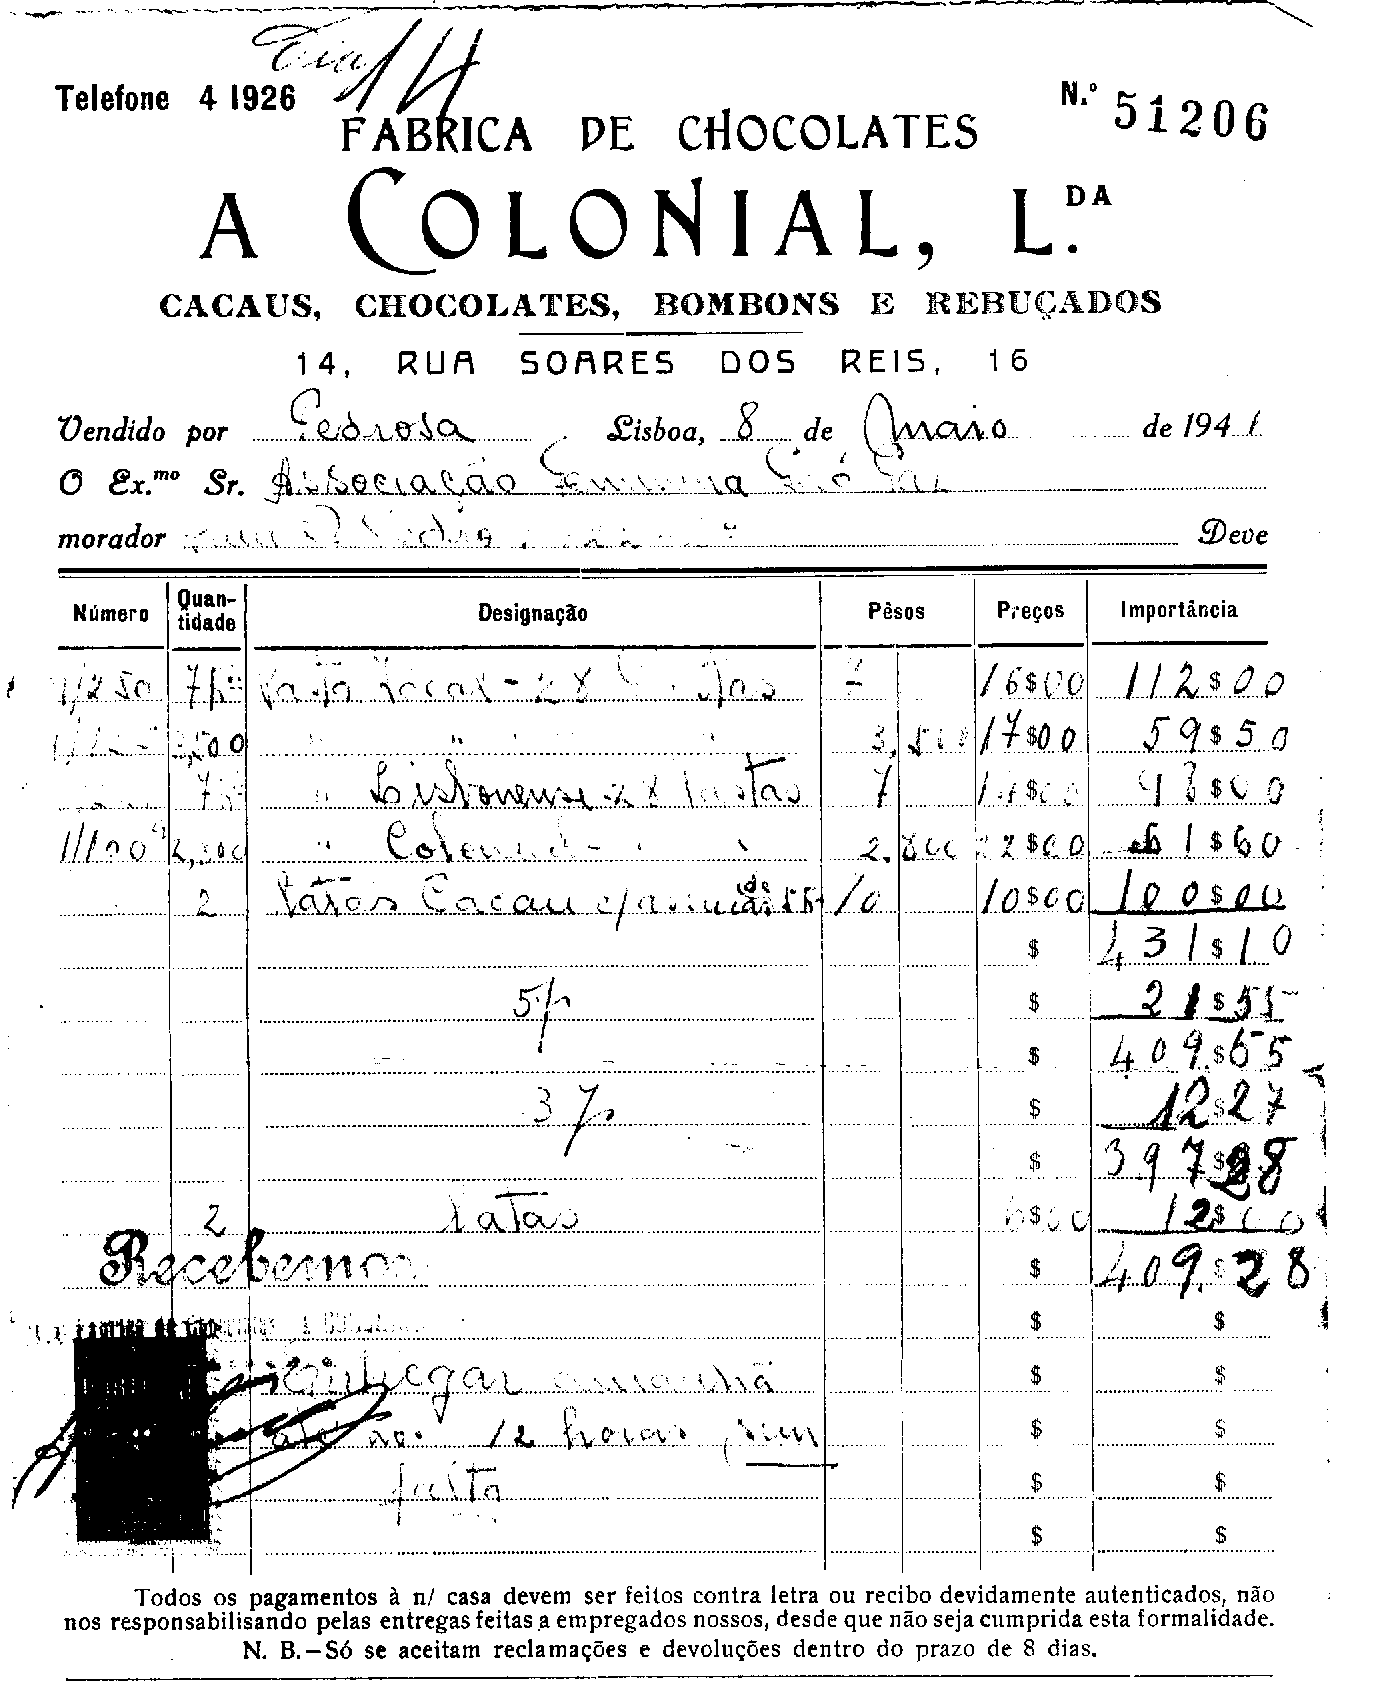 Telefone 4 1926
N.º 51206
FABRICA DE CHOCOLATES
A COLONIAL, L.DA
CACAUS, CHOCOLATES, BOMBONS E REBUÇADOS
14, RUA SOARES DOS REIS, 16
Vendido por Pedrosa Lisboa, 8 de Maio de 1941
O Ex.mo Sr. Associação Feminina
morador Deve
Número Quantidade Designação Pêsos Preços Importância
1/250 7 7 16$00 112$00
3,500 " " " " 3,500 17$00 59$50
7 " Lisbonense - 28 7 14$00 98$00
1/100 2,800 " 2.800 22$00 61$60
2 latas Cacau 10 10$00 100$00
$ 431$10
5% $ 21$55
$ 409$55
3% $ 12$27
$ 397$28
2 latas 6$00 12$00
Recebemos $ 409$28
$ $
Entregar amanhã $ $
12 horas, sem $ $
falta $ $
$ $
Todos os pagamentos à n/ casa devem ser feitos contra letra ou recibo devidamente autenticados, não
nos responsabilisando pelas entregas feitas a empregados nossos, desde que não seja cumprida esta formalidade.
N. B.—Só se aceitam reclamações e devoluções dentro do prazo de 8 dias.